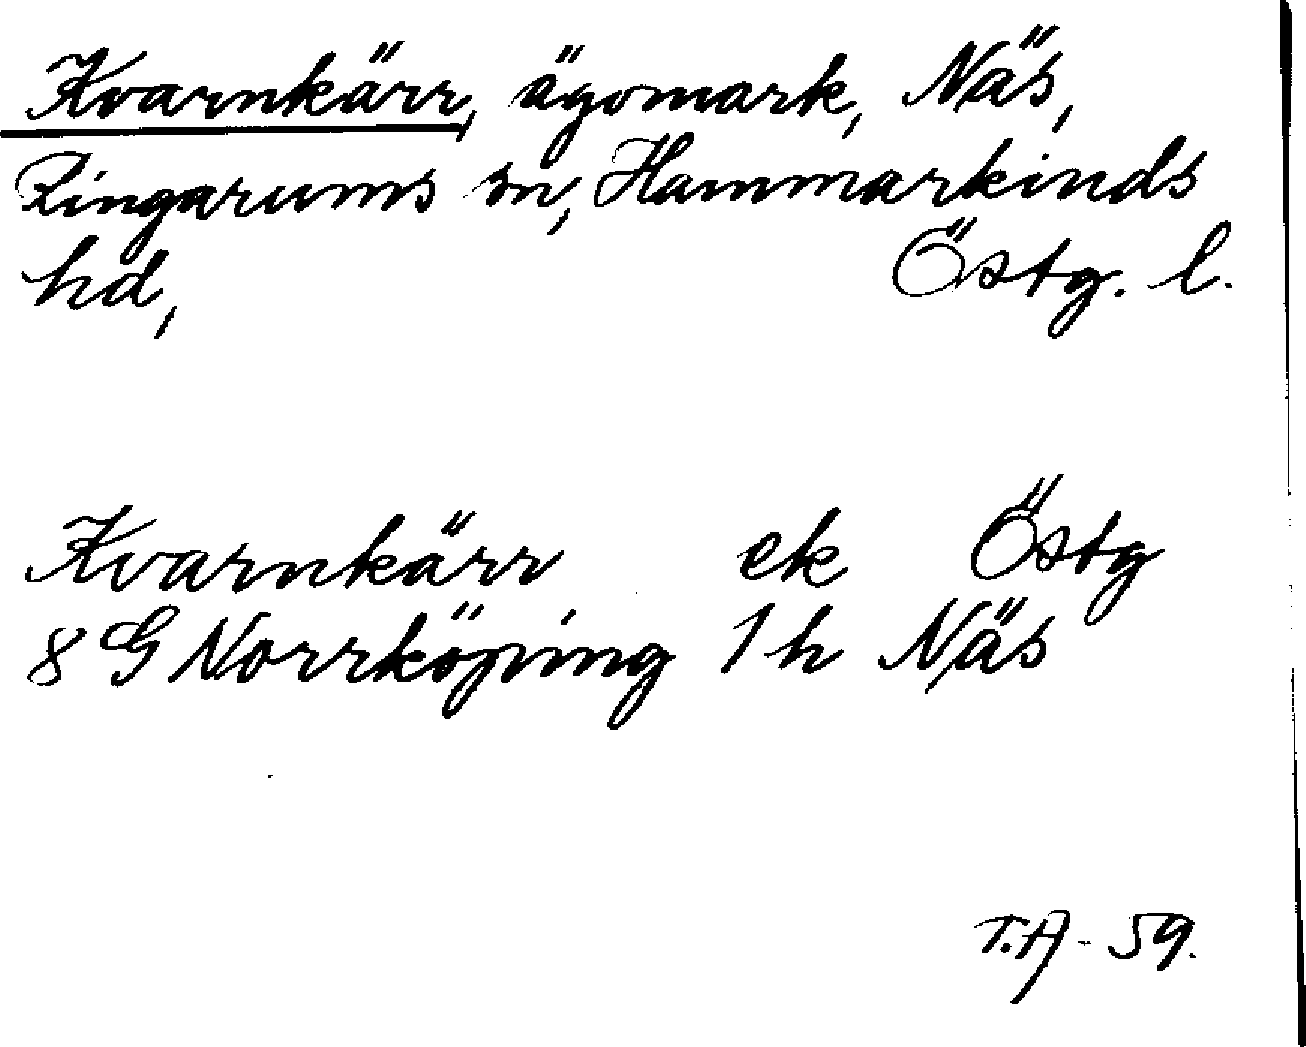 Kvarnkärr, ägomark, Näs,
Ringarums sn, Hammarkinds
hd, Östg. l.
Kvarnkärr ek Östg
8 G Norrköping 1 h Näs
T.A - 59.